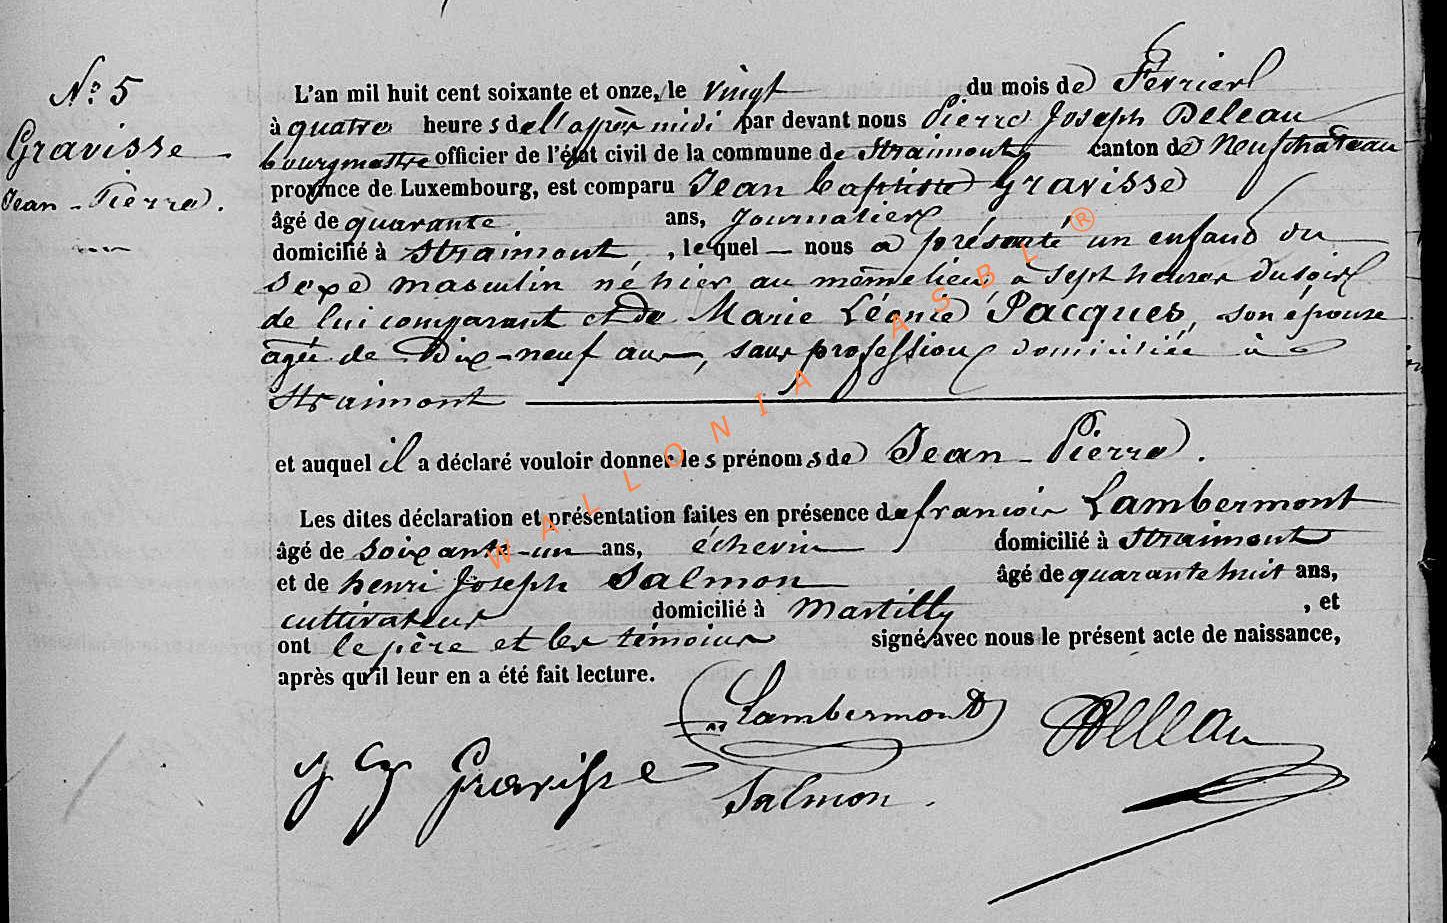 N.° 5
Gravisse
Jean-Pierre.
L'an mil huit cent soixante et onze, le vingt du mois de Fevrier
à quatre heures de l'après midi par devant nous Pierre Joseph Deleau
bourgmestre officier de l'état civil de la commune de Straimont, canton de Neufchateau
province de Luxembourg, est comparu Jean baptiste Gravisse
âgé de quarante ans, journalier
domicilié à Straimont, lequel nous a présenté un enfant du
sexe masculin né hier au même lieu à sept heures du soir
de lui comparant et de Marie Léonie Jacques, son épouse
agée de Dix-neuf ans, sans profession domiciliée à
Straimont
et auquel il a déclaré vouloir donner les prénoms de Jean-Pierre.
Les dites déclaration et présentation faites en présence de francois Lambermont
âgé de soixante-un ans, échevin domicilié à Straimont
et de henri Joseph Salmon âgé de quarante huit ans,
cultivateur domicilié à Martilly, et
ont le père et les témoins signé avec nous le présent acte de naissance,
après qu'il leur en a été fait lecture.
Lambermont
Deleau
Gravisse
Salmon.
WALLONIA ASBL ®